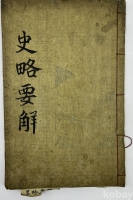 史略要解
kobay